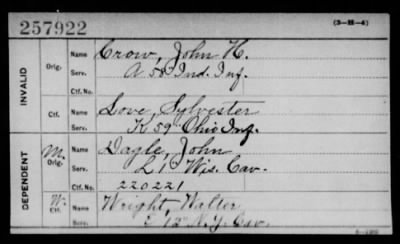 257922 (3-H-4)
INVALID
Orig. Name Crow, John H.
Serv. A 58" Ind. Inf.
Ctf. No.
Ctf. Name Love, Sylvester
Serv. K 59" Ohio Inf.
DEPENDENT
M. Orig. Name Dagle, John
Serv. L 1" Wis. Cav.
Ctf. No. 220221
W. Ctf. Name Wright, Walter
Serv. 12" N.Y. Cav.